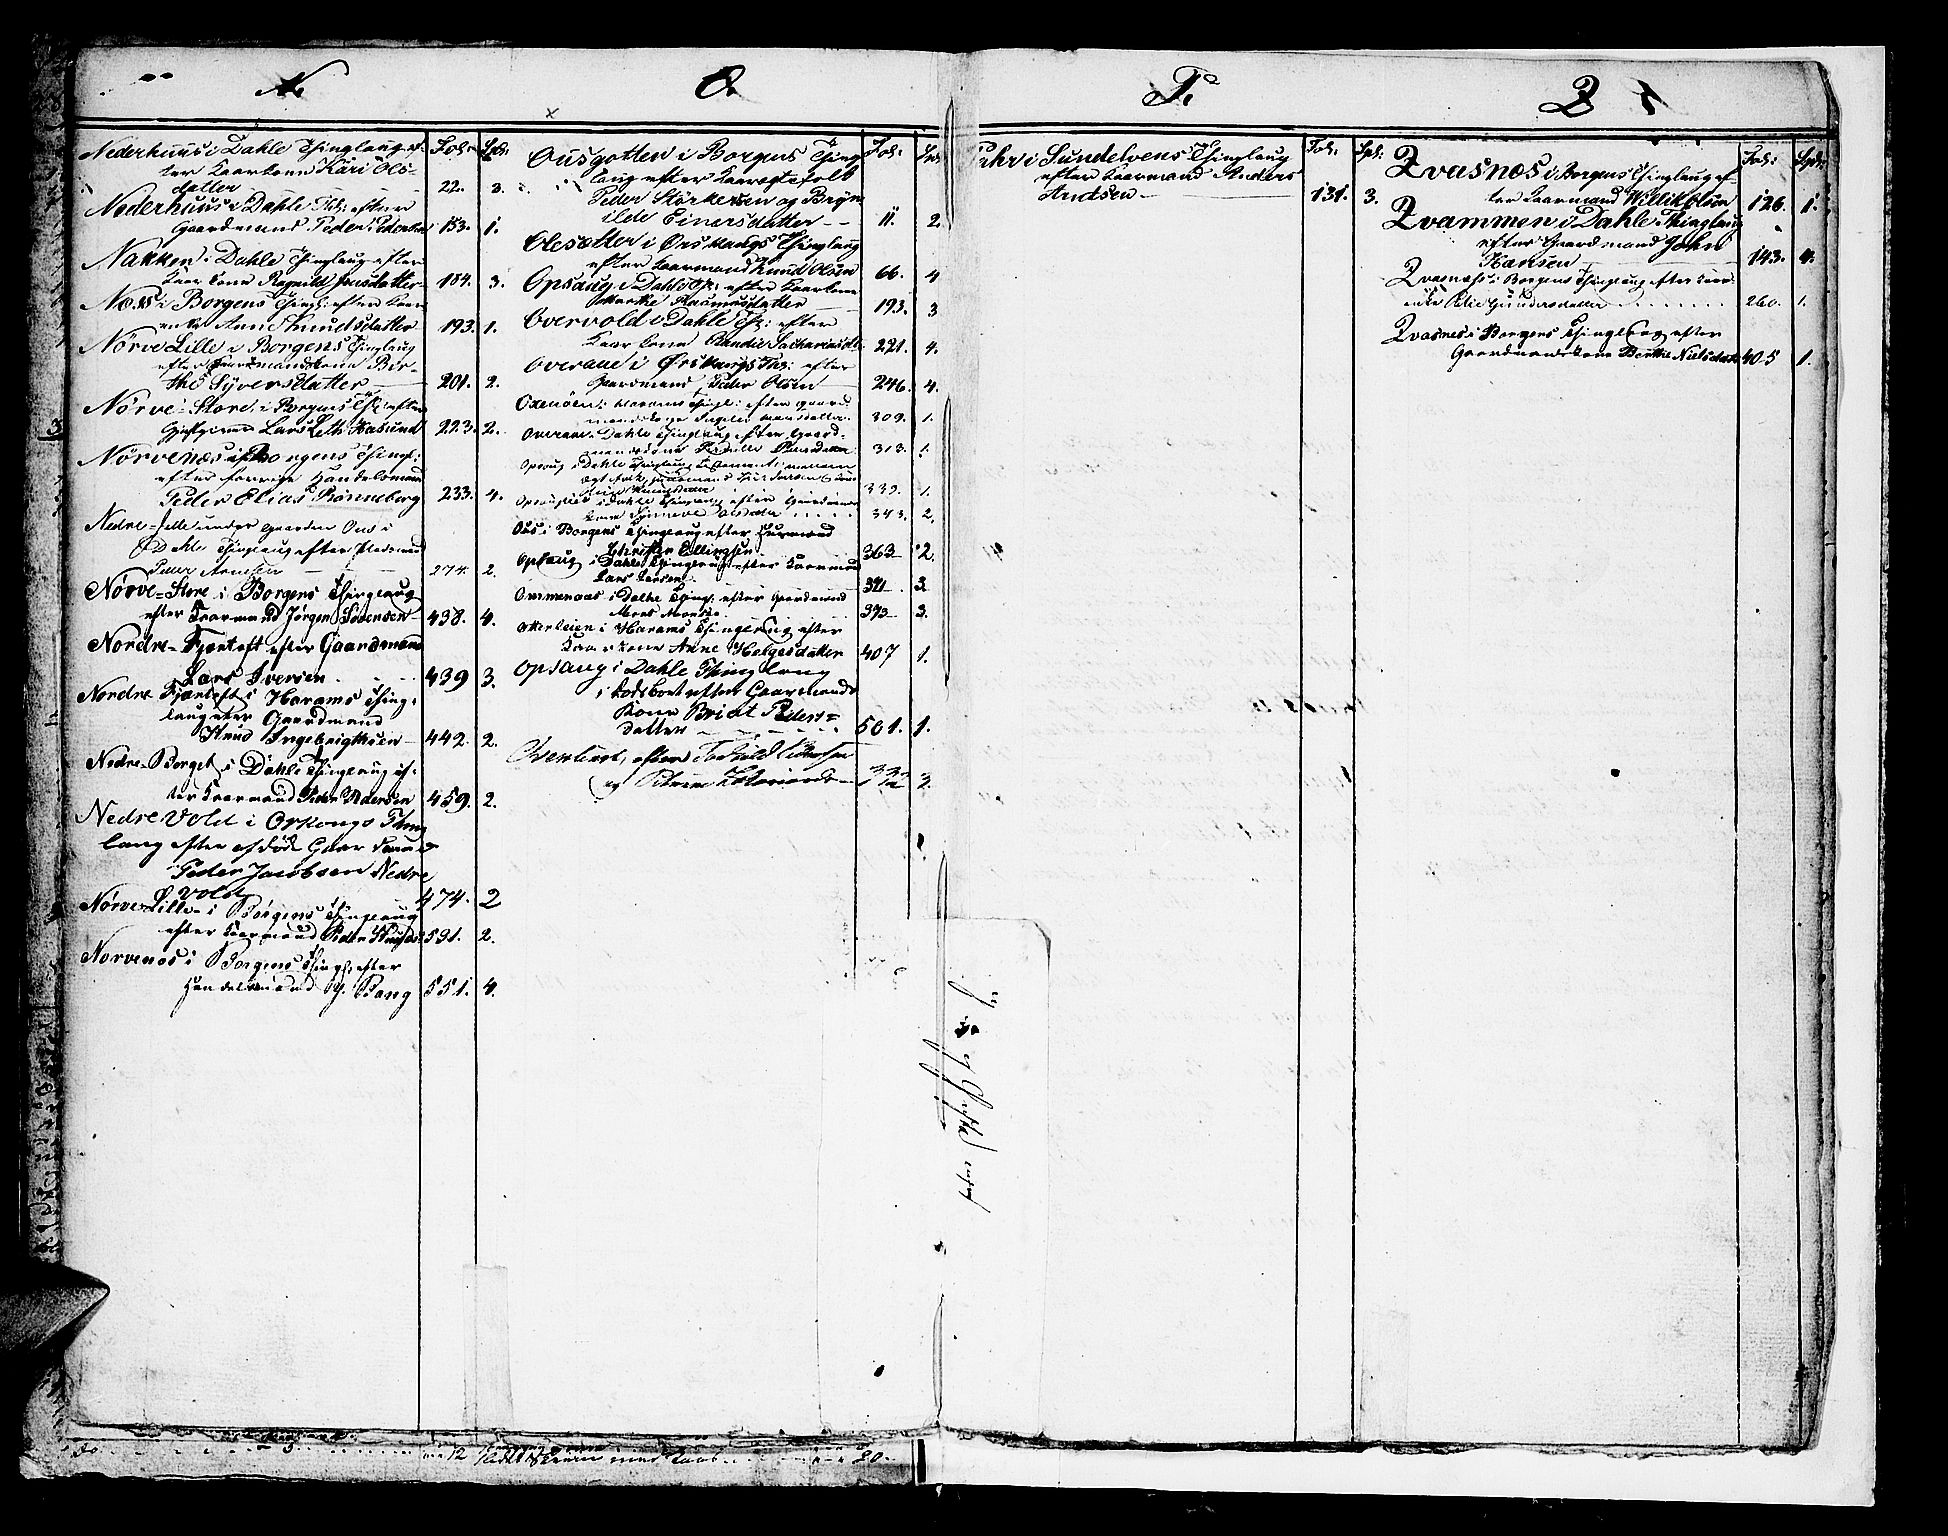 N.
Nederhuus i Dahle Thinglaug ef- Fol: Spl:
ter Kaarkone Kari Ols-
datter 22. 3.
Nederhuus i Dahle Th: efter
Gaardmand Peder Pedersen 153. 1.
Nakken i Dahle Thinglaug efter
Kaarkone Ragnild Jensdatter 184. 3.
Næss i Borgens Thingl: efter Kaar-
enke Anne Knudsdatter 193. 1.
Nørve Lille i Borgens Thinglaug
efter Gaardmandskone Ber-
the Syversdatter 201. 2.
Nørve-Store i Borgens Th: efter
Lars Leth Hasund 223. 2.
Nørvenæs i Borgens Thingl:
efter forrige Handelsmand
Peder Elias Rønneberg 233. 4.
Nedre-Lille under Gaarden Ous i
Dahle Thinglaug efter Pladsmand
Peder Arnesen 274. 2.
Nørve-Store i Borgens Thinglaug
efter Kaarmand Jørgen Sørensen 438. 4.
Nordre-Fjærtoft efter Gaardmand
Lars Iversen 439 3.
Nordre Fjærtoft i Harams Thing-
laug efter Gaardmand
Knud Ingebrigtsen 442. 2.
Nedre-Borget i Dahle Thinglaug ef-
ter Kaarmand Peder Pedersen 459. 2.
Nedre Vold i Ørskougs Thing
laug efter afdøde Gaardmand
Peder Jacobsen Nedre
Vold 474. 2
Nørve-Lille i Borgens Thinglaug
efter Kaarmand Peder Knudsen 591. 2.
Nørvenæs i Borgens Thingl: efter
Handelsmand J. Bang 551. 4.
O.
Ousgotten i Borgens Thing Fol: Spl:
laug efter Kaaregtefolk
Peder Størkersen og Bryn-
ilde Einersdatter 11. 2.
Olesætter i Ørskougs Thinglaug
efter Kaarmand Knud Olsen 66. 4
Opsaug i Dahle Th: efter Kaarkone
Marthe Rasmusdatter 193. 3
Overvold i Dahle Th: efter
Kaarkone Randie Sachariasdt. 221. 4.
Overaae i Ørskougs Th: efter
Gaardmand Peder Olsen 246. 4.
Oxenøen i Harams Thingl: efter Gaard-
mandskone Ingeborg Hansdatter 309. 1.
Overaae i Dahle Thinglaug efter Gaard-
mandskone Pernille Pedersdatter 313. 1.
Opsaug i Dahle Thinglaug
339. 1.
Opsaug i Dahle Thinglaug efter Gaardmands-
kone Synneve Olsdatter 343. 2.
Ous i Borgens Thinglaug efter
Christen Ellingsen 363 2.
Opsaug i Dahle Thinglaug efter Kaarmand
Lars Larsen 371. 3
Ommenaas i Dahle Thingl: efter Gaardmand
Mons Monsen 373 3.
Otterleien i Harams Thinglaug efter
Kaarkone Anne Helgesdatter 407 1.
Opsaug i Dahle Thinglaug
efter Gaarmands
Kone Brint Peders-
datter 501. 1.
efter
og 332 3.
T.
Tuhr i Sundelvens Thinglaug Fol: Spl:
efter Kaarmand Anders
Andsen 131. 3.
Z
Zvasnæs i Borgens Thinglaug ef- Fol: Spl:
ter Kaarmand Willik Olsen 126. 1.
Zvammen i Dahle Thinglaug
efter Gaardmand John
Hansen 143. 4.
Zvasnæs i Borgens Thinglaug efter Kaar-
enke Pilie Gundersdatter 260. 1.
Zvasnes i Borgens Thinglaug efter
Gaardmandskone Berthe Nielsdatt 405 1.
20.